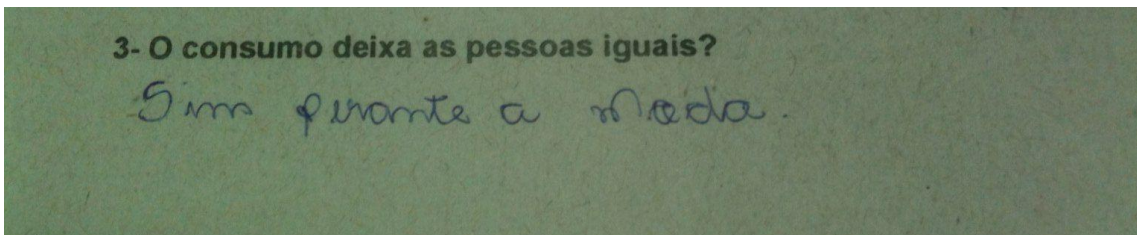 3- O consumo deixa as pessoas iguais?
Sim perante a moda.